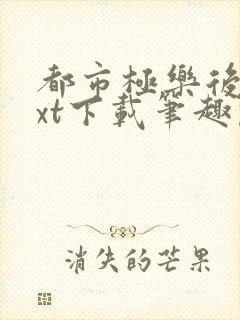 都市極樂後
xt下載筆趣
消失的芒果